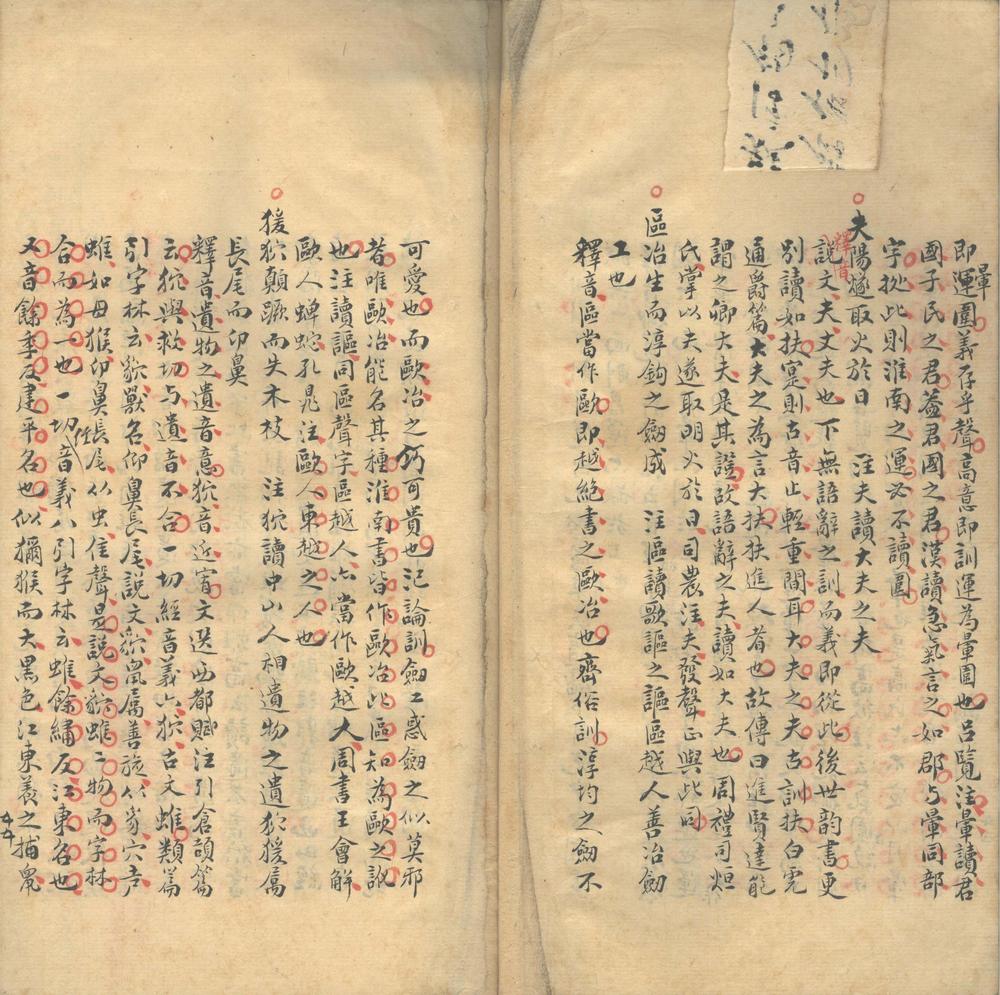 暈
即運圍義存乎聲高意即訓運為暈圍也呂覽注暈讀君
國子民之君蓋君國之君漢讀急氣言之如郡与暈同部
字從此則淮南之運必不讀圍
夫陽燧取火於日　注夫讀大夫之夫
釋音
說文夫丈夫也下無語辭之訓而義即從此後世韵書更
別讀如扶寔則古音止輕重間耳大夫之夫古訓扶白虎
通爵篇大夫之為言大扶扶進人者也故傳曰進賢達能
謂之卿大夫是其證故語辭之夫讀如大夫也周禮司烜
氏掌以夫遂取明火於日司農注夫發聲正與此同
區冶生而淳鈎之劔成　注區讀歌謳之謳區越人善冶劔
工也
釋音區當作歐即越絕書之歐冶也齊俗訓淳均之劔不
可愛也而歐冶之巧可貴也氾論訓劔工惑劔之似莫邪
者唯歐冶能名其種淮南書皆作歐冶此區知為歐之訛
也注讀謳同區聲字區越人亦當作歐越人周書王會解
歐人蟬蛇孔晁注歐人東越之人也
猨狖顛蹶而失木枝　注狖讀中山人相遺物之遺狖猨屬
長尾而卬鼻
釋音遺物之遺音意狖音近宥文選西都賦注引倉頡篇
云狖與救切与遺音不合一切經音義六狖古文蜼類篇
引字林云貁獸名仰鼻長尾說文貁鼠屬善旋从豸穴聲
蜼如母猴卬鼻長尾从虫隹聲是說文貁蜼二物而字林
合而為一也一切經音義八引字林云蜼餘繡反江東名也
又音餘季反建平名也似獼猴而大黑色江東養之捕鼠